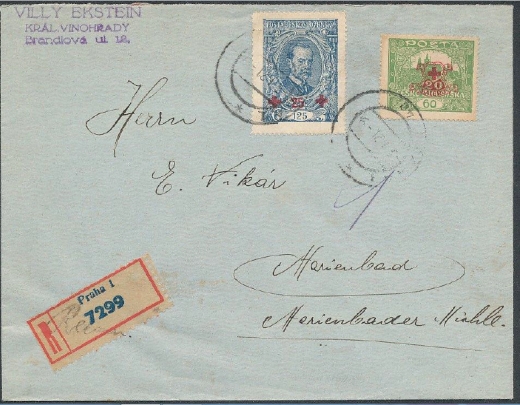 VILLY EKSTEIN
KRÁL. VINOHRADY
Brandlova ul 12.
25
125
POŠTA
20
60
Herrn
E. Vikár
Marienbad
Marienbader Mühle.
Praha 1
7299
R